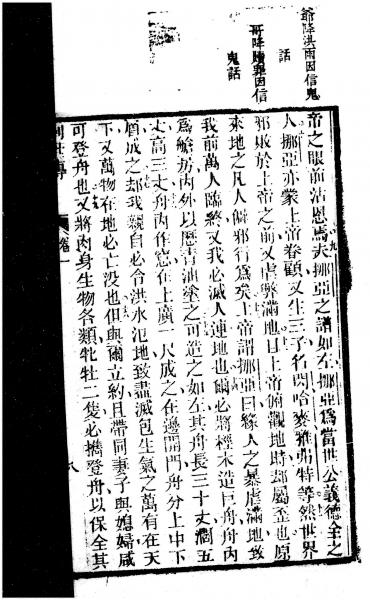 爺降洪雨因信鬼
話
哥降贖罪因信
鬼話
帝之眼前沾恩焉夫挪亞之譜如左挪亞爲當世公義德全之
人挪亞亦蒙上帝眷顧又生三子名閃哈麥雅弗特等然世界
邪敗於上帝之前又虐弊滿地且上帝俯觀地時却屬歪也原
來地之凡人僻邪行爲矣上帝謂挪亞曰緣人之暴虐滿地致
我前萬人臨終又我必滅人連地也爾必將木造巨舟舟內
爲艙房內外以瀝青油塗之可造之如左其舟長三十丈濶五
丈高三丈舟內作窓在上廣一尺成之在邊開門舟分上中下
層成之却我親自必令洪水氾地致盡滅包生氣之萬有在天
下又萬物在地必亡没也但與爾立約且帶同妻子與媳婦咸
可登舟也又將肉身生物各類牝牡二隻必攜登舟以保全其
創世傳 卷一 八